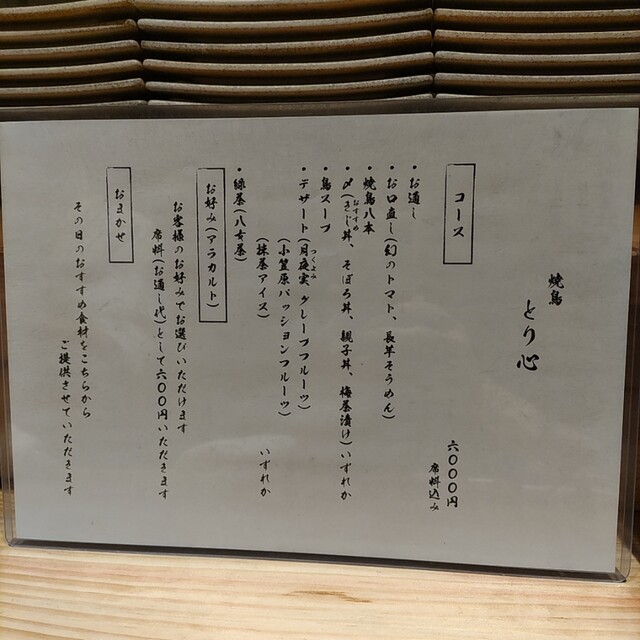 焼鳥 とり心
コース
六〇〇〇円
席料込み
・お通し
・お口直し(幻のトマト、長芋そうめん)
・焼鳥八本
・〆(きじ丼、そぼろ丼、親子丼、梅茶漬け)いずれか
おすすめ
・鳥スープ
・デザート(月夜実 グレープフルーツ)
つくよみ
(小笠原パッションフルーツ)
(抹茶アイス) いずれか
・緑茶(八女茶)
お好み(アラカルト)
お客様のお好みでお選びいただけます
席料(お通し代)として六〇〇円いただきます
おまかせ
その日のおすすめ食材をこちらから
ご提供させていただきます